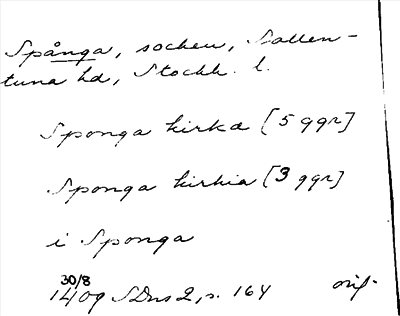 Spånga, socken, Sollen-
tuna hd, Stockh. l.
Sponga kirka [5 ggr]
Sponga kirkia [3 ggr]
i Sponga
30/8
1409 SDns 2, s. 164 orig.